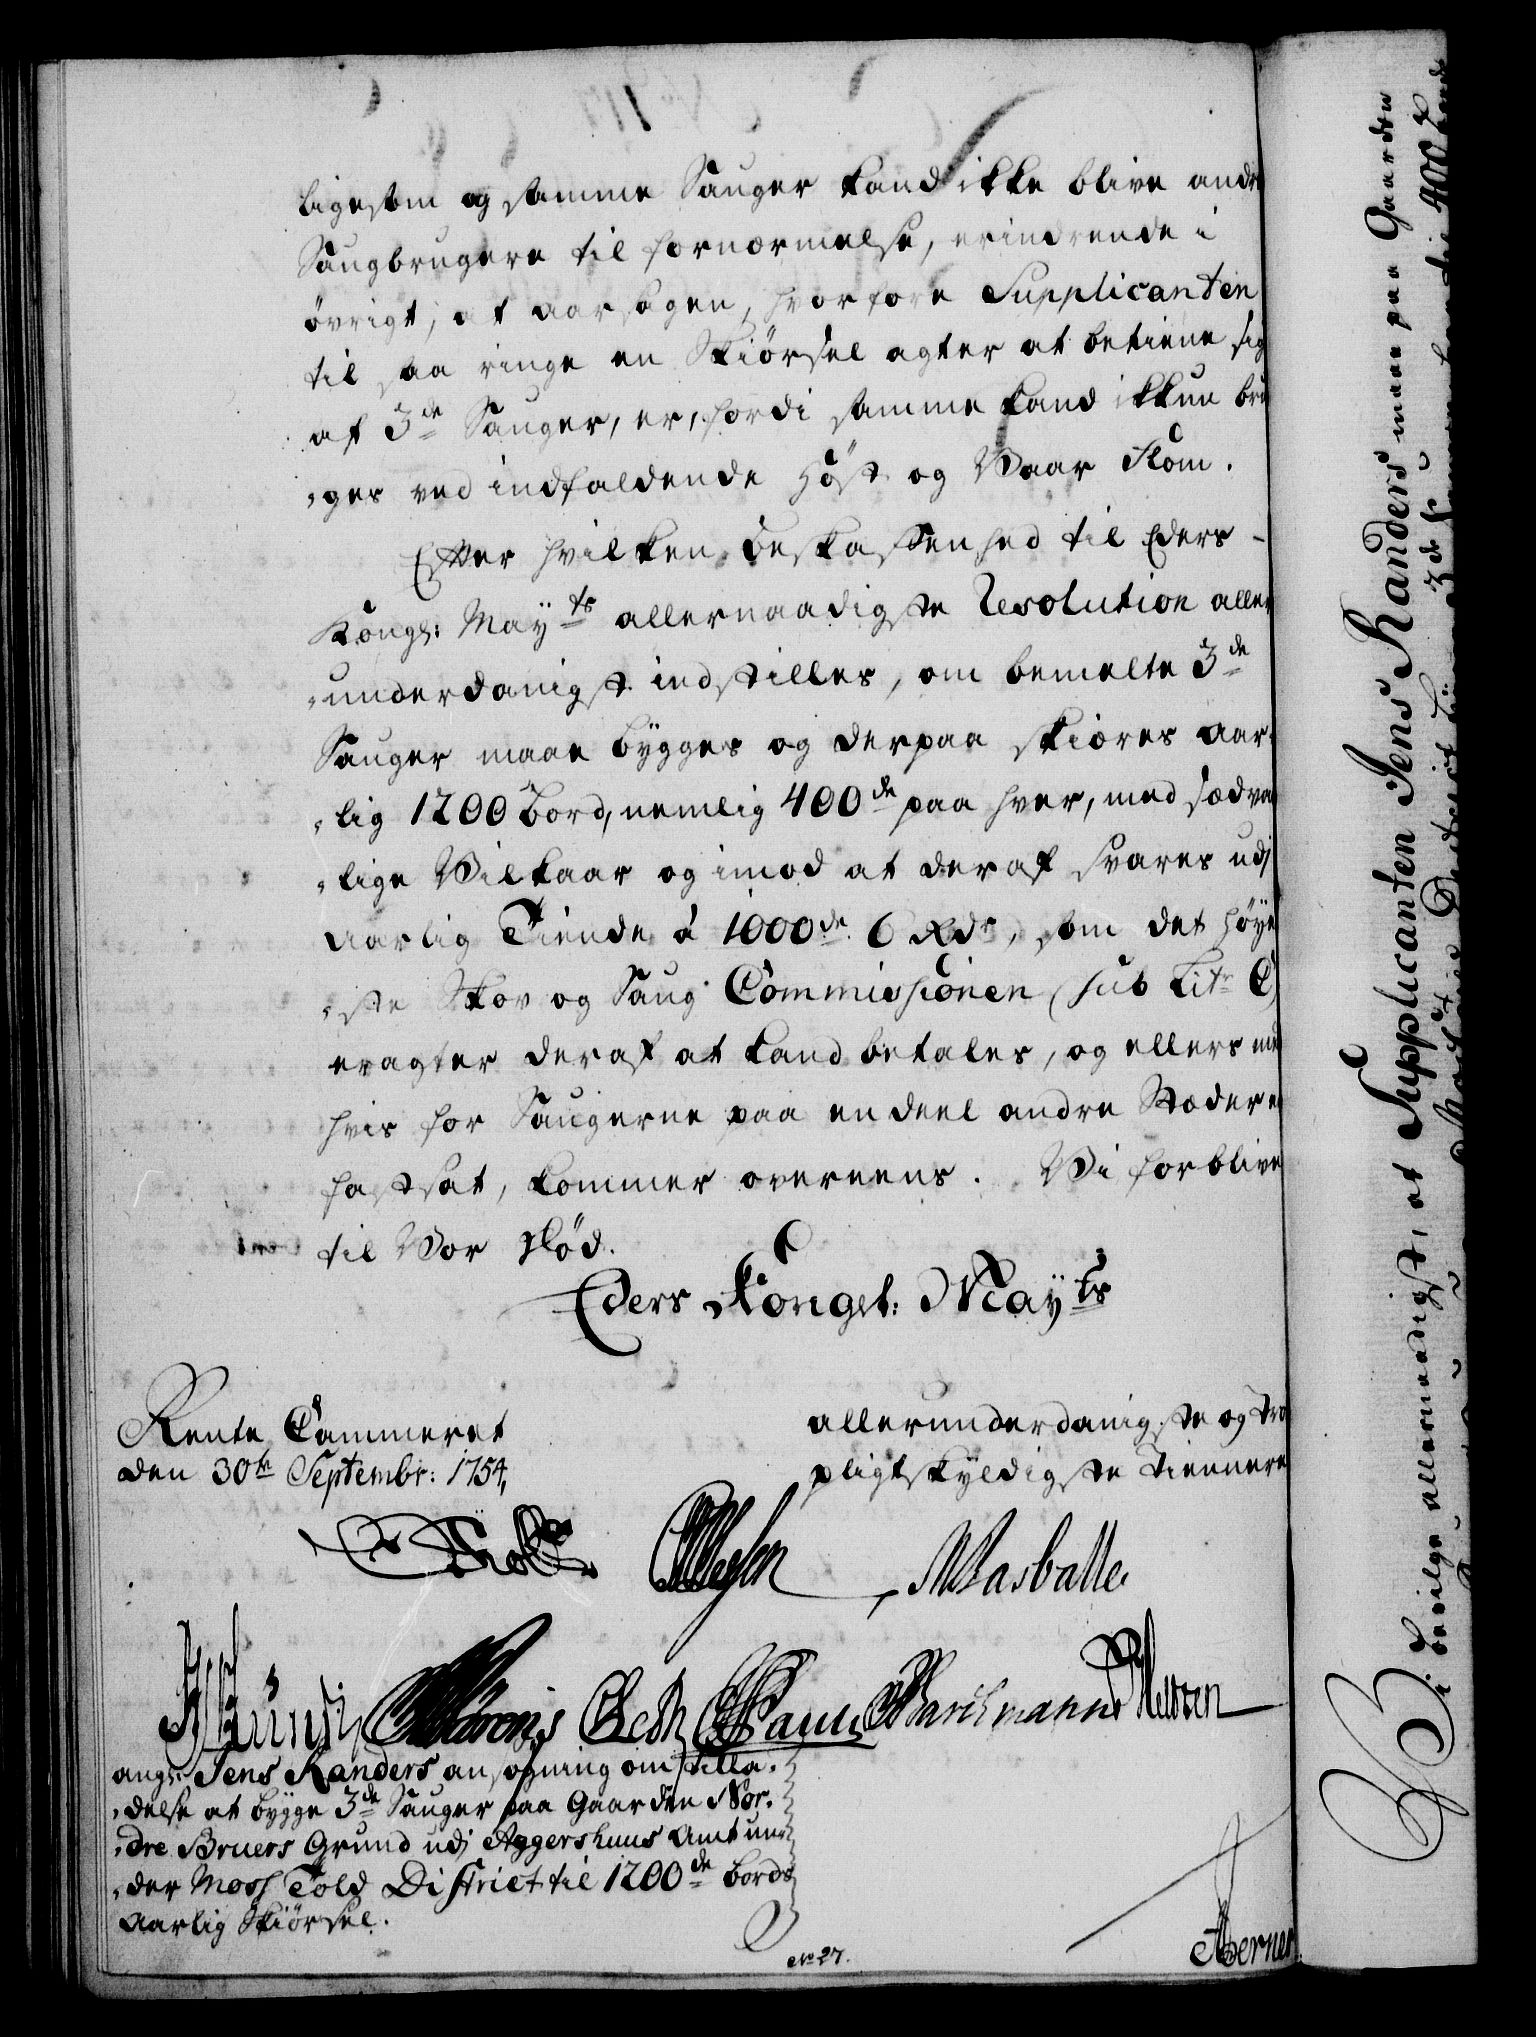 ligesom og samme Sauger kand ikke blive andre
Saugbrugere til fornærmelse, erindrende i
öfrigt, at aarsagen, hvorfore Supplicanten
til saa ringe en Skiörsel agter at betiene sig
af 3de Sauger, er, fordi samme kand ikkun bru
„ges ved indfaldende Höst og Vaar Flom.
Efter hvilken beskaffenhed til Eders
Kongl: Mayts allernaadigste Resolution aller
„underdanigst indstilles, om bemelte 3de
Sauger maae bygges og derpaa skiæres aar
„lig 1200 Bord, nemlig 400de paa hver, med sædvan
„lige Vilkaar og imod at deraf svares udj
aarlig Tiende à 1000de 6 Rdr, som det höye
„ste Skov og Saug Commissionen (sub Litr C)
eragter deraf at kand betales, og ellers med
hvis for Saugerne paa en deel andre Stæder er
fastsat, kommer overeens. Vi forblive
til Vor Död.
Eders Kongel: Mayts
Rente Cammeret
den 30te Septembr: 1754,
allerunderdanigste og tro
pligtskyldigste Tiennere
angl. Jens Randers ansögning om tilla-
„delse at bygge 3de Sauger paa Gaarden Nor-
„dre Bruers Grund udj Aggershuus Amt un-
„der Moss Told District til 1200de bords
aarlig Skiörsel.
No 27.
Vi bevilge allernaadigst, at Supplicanten Jens Randers maae paa Gaarden